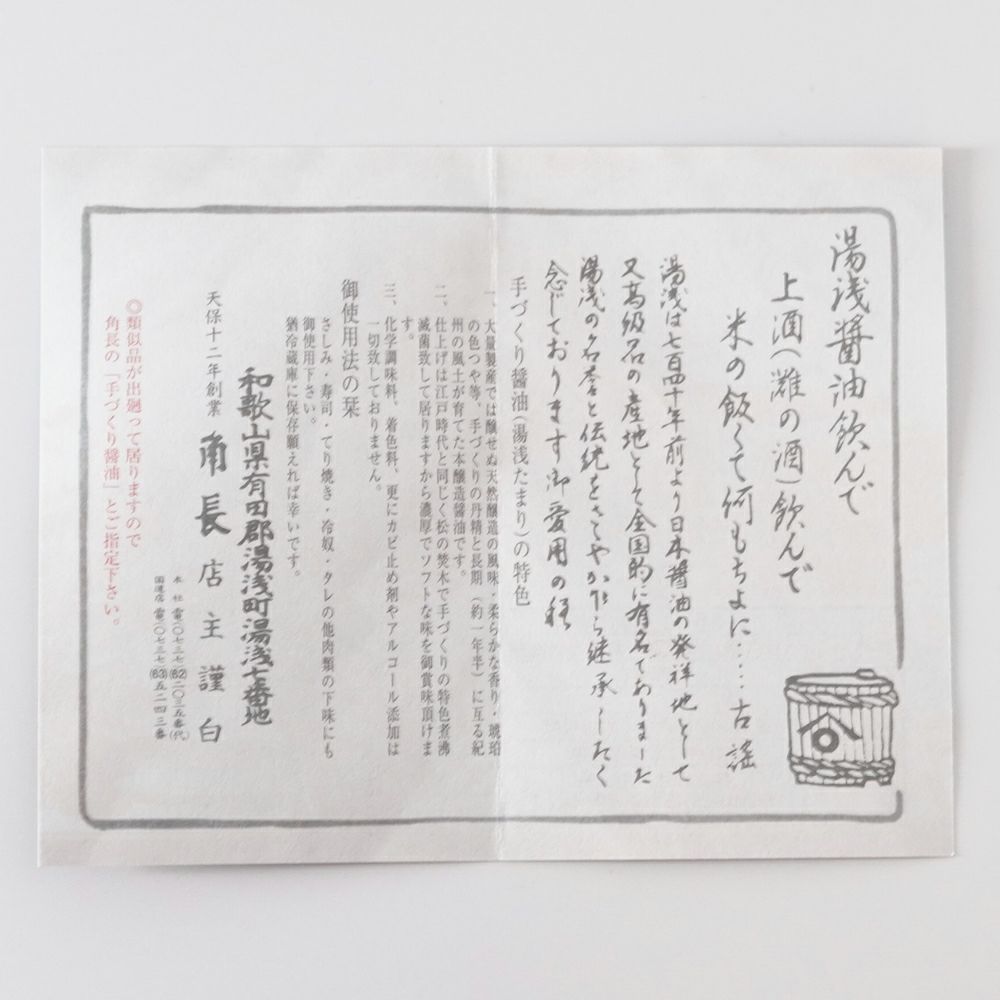 湯浅醤油飲んで
上酒(灘の酒)飲んで
米の飯くて何もちよに……古謡
湯浅は七百四十年前より日本醤油の発祥地として
又高級品の産地として全国的に有名でありました
湯浅の名誉と伝統をささやか乍ら継承したく
念じております御愛用の程
手づくり醤油(湯浅たまり)の特色
一、大量製産では醸せぬ天然醸造の風味・柔らかな香り・琥珀
の色つや等、手づくりの丹精と長期(約一年半)に亙る紀
州の風土が育てた本醸造醤油です。
二、仕上げは江戸時代と同じく松の焚木で手づくりの特色煮沸
滅菌致して居りますから濃厚でソフトな味を御賞味頂けま
す。
三、化学調味料、着色料、更にカビ止め剤やアルコール添加は
一切致しておりません。
御使用法の栞
さしみ・寿司・てり焼き・冷奴・タレの他肉類の下味にも
御使用下さい。
猶冷蔵庫に保存願えれば幸いです。
和歌山県有田郡湯浅町湯浅七番地
天保十二年創業 角長 店主謹白
本社 電(〇七三七)(62)二〇三五番(代)
国道店 電(〇七三七)(63)五二四三番
◎類似品が出廻って居りますので
角長の「手づくり醤油」とご指定下さい。